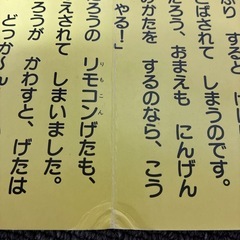 ぶり すると
こばされて
しまうのです。
だろう、おまえも にんげん
のかたを するのなら、こう
やる！」
たろうの リモコンげたも、
りもこん
えされて しまいました。
ろうが かわすと、げたは
どっか〜ん